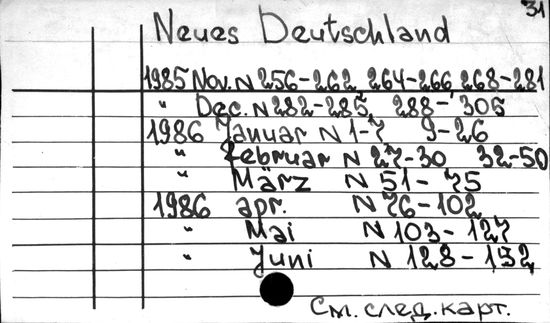 31
Neues Deutschland
1985 Nov. N 256-262, 264-266, 268-281
" Dec. N 282-285, 288-305
1986 Januar N 1-7 9-26
" Februar N 27-30 32-50
" März N 51-75
1986 apr. N 76-102
" Mai N 103-127
" Juni N 128-152
См. след. карт.